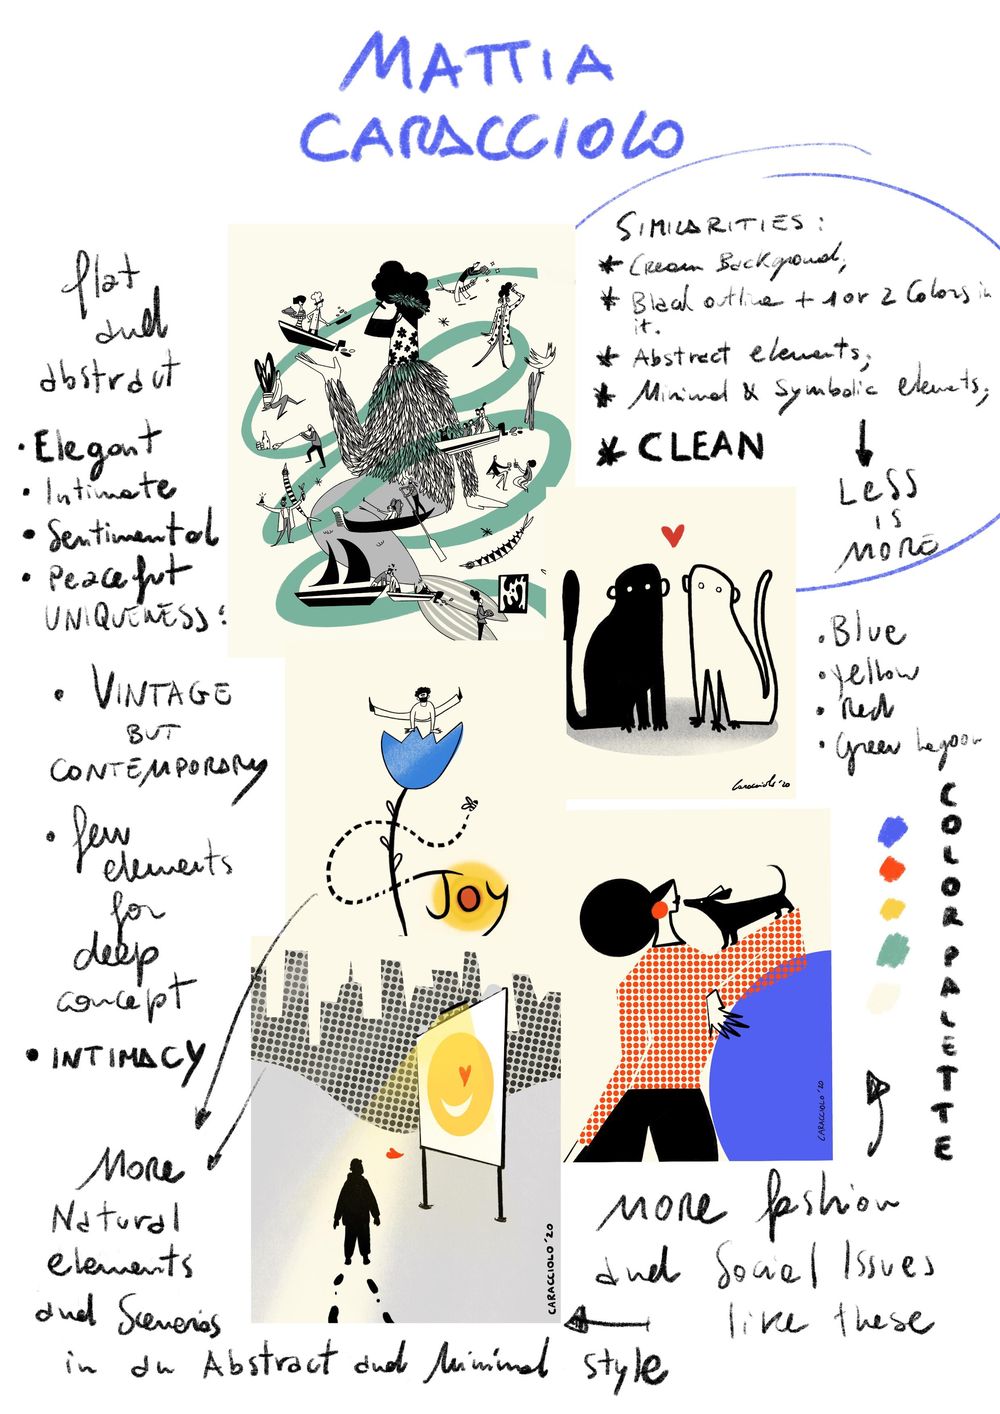 MATTIA
CARACCIOLO
flat
and
abstract
• Elegant
• Intimate
• Sentimental
• Peaceful
UNIQUENESS:
• VINTAGE
BUT
CONTEMPORARY
• few
elements
for
deep
concept
• INTIMACY
More
Natural
elements
and Scenarios
in an Abstract and Minimal style
SIMILARITIES:
* Cream Background;
* Black outline + 1 or 2 Colors in
it.
* Abstract elements;
* Minimal & Symbolic elements;
* CLEAN
LESS
IS
MORE
• Blue
• Yellow
• Red
• Green Lagoon
COLOR PALETTE
JOY
Caracciolo '20
CARACCIOLO '20
CARACCIOLO '20
MORE fashion
and Social Issues
like these